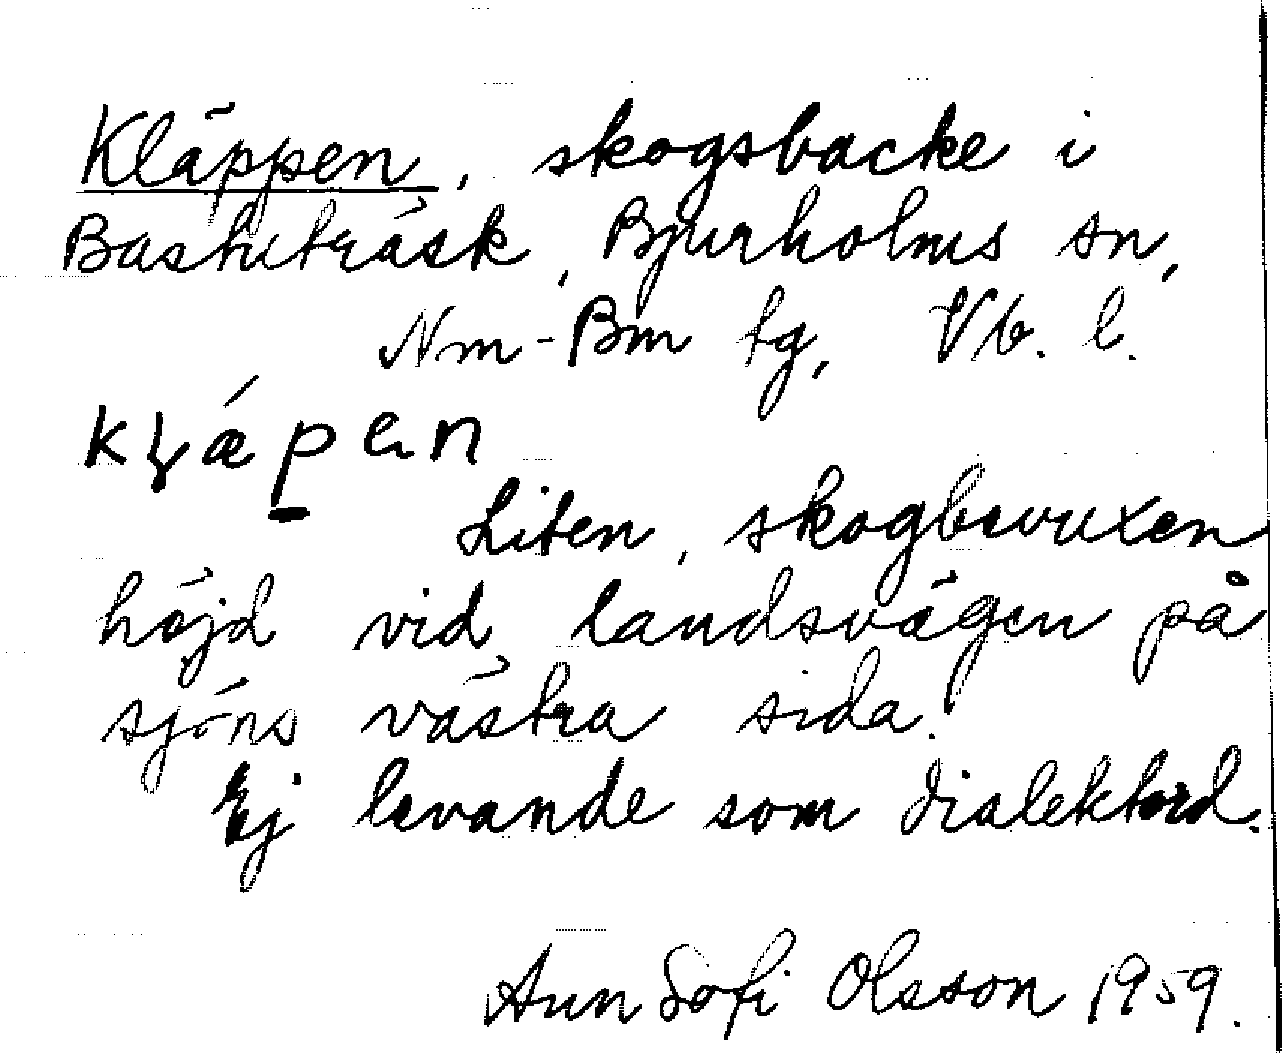 Kläppen, skogsbacke i
Bastuträsk, Bjurholms sn,
Nm-Bm tg, Vb. l.
kɭæ̀pen
Liten, skogbevuxen
höjd vid landsvägen på
sjöns västra sida.
Ej levande som dialektord.
Ann Sofi Olsson 1959.